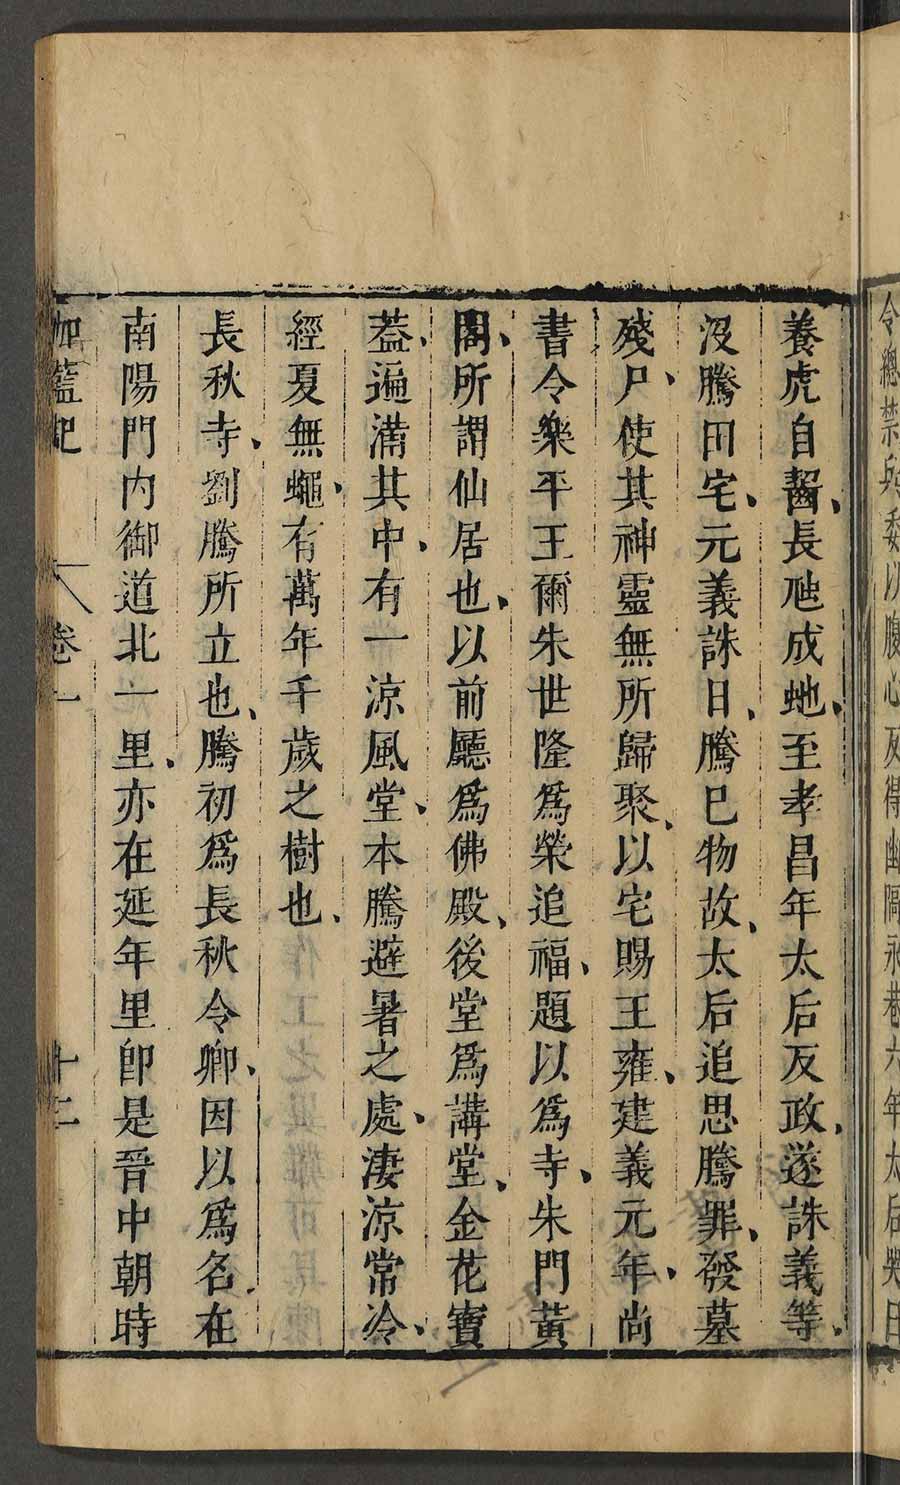 令總禁兵委以腹心反得幽隔永巷六年太后哭曰
養虎自齧、長虺成虵、至孝昌年太后反政、遂誅義等、
沒騰田宅、元義誅日、騰巳物故、太后追思騰罪、發墓
殘尸、使其神靈無所歸聚、以宅賜王雍、建義元年、尚
書令樂平王爾朱世隆爲榮追福、題以爲寺、朱門黃
閣、所謂仙居也、以前廳爲佛殿、後堂爲講堂、金花寶
葢、遍滿其中、有一凉風堂、本騰避暑之處、淒凉常冷、
經夏無蠅、有萬年千歲之樹也、
長秋寺、劉騰所立也、騰初爲長秋令卿、因以爲名在
南陽門内御道北一里、亦在延年里卽是晉中朝時
伽藍記 卷一 十二